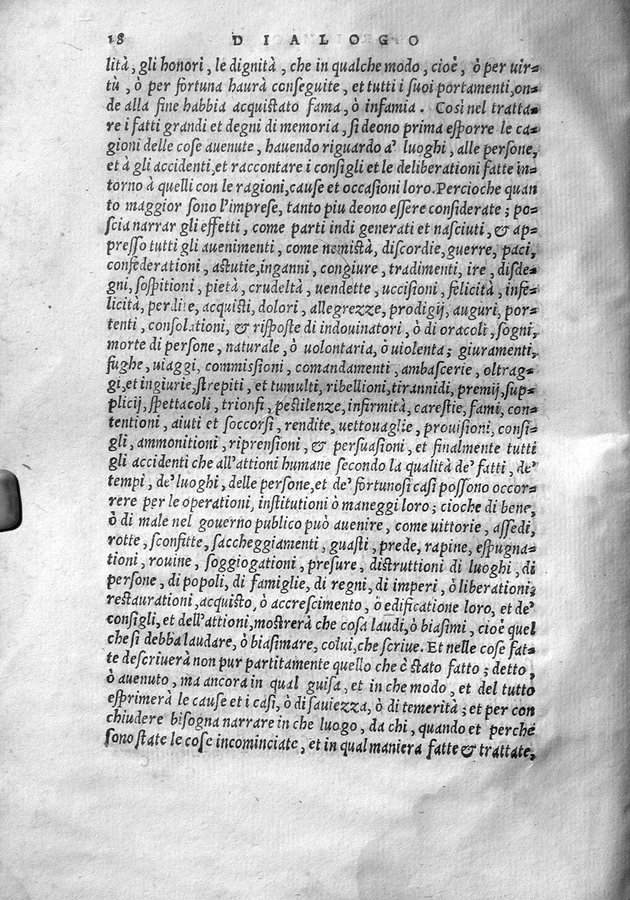 18 DIALOGO
lità, gli honori, le dignità, che in qualche modo, cioè, ò per uir=
tù, ò per fortuna haurà conseguite, et tutti i suoi portamenti, on=
de alla fine habbia acquistato fama, ò infamia. Così nel tratta=
re i fatti grandi et degni di memoria, si deono prima esporre le ca=
gioni delle cose auenute, hauendo riguardo a' luoghi, alle persone,
et à gli accidenti, et raccontare i consigli et le deliberationi fatte in=
torno à quelli con le ragioni, cause et occasioni loro. Percioche quan
to maggior sono l'imprese, tanto piu deono essere considerate; po=
scia narrar gli effetti, come parti indi generati et nasciuti, & ap=
presso tutti gli auenimenti, come nemistà, discordie, guerre, paci,
confederationi, astutie, inganni, congiure, tradimenti, ire, disde=
gni, sospitioni, pietà, crudeltà, uendette, uccisioni, felicità, infe=
licità, perdite, acquisti, dolori, allegrezze, prodigij, auguri, por=
tenti, consolationi, & risposte di indouinatori, ò di oracoli, sogni,
morte di persone, naturale, ò uolontaria, ò uiolenta; giuramenti,
fughe, uiaggi, commissioni, comandamenti, ambascerie, oltrag=
gi, et ingiurie, strepiti, et tumulti, ribellioni, tirannidi, premij, sup=
plicij, spettacoli, trionfi, pestilenze, infirmità, carestie, fami, con=
tentioni, aiuti et soccorsi, rendite, uettouaglie, prouisioni, consi=
gli, ammonitioni, riprensioni, & persuasioni, et finalmente tutti
gli accidenti che all'attioni humane secondo la qualità de' fatti, de'
tempi, de' luoghi, delle persone, et de' fortunosi casi possono occor=
rere per le operationi, institutioni ò maneggi loro; cioche di bene,
ò di male nel gouerno publico può auenire, come uittorie, assedi,
rotte, sconfitte, saccheggiamenti, guasti, prede, rapine, espugna=
tioni, rouine, soggiogationi, presure, distruttioni di luoghi, di
persone, di popoli, di famiglie, di regni, di imperi, ò liberationi,
restaurationi, acquisto, ò accrescimento, ò edificatione loro, et de'
consigli, et dell'attioni, mostrerà che cosa laudi, ò biasimi, cioè quel
che si debba laudare, ò biasimare, colui, che scriue. Et nelle cose fat=
te descriuerà non pur partitamente quello che è stato fatto; detto,
ò auenuto, ma ancora in qual guisa, et in che modo, et del tutto
esprimerà le cause et i casi, ò di sauiezza, ò di temerità; et per con
chiudere bisogna narrare in che luogo, da chi, quando et perche
sono state le cose incominciate, et in qual maniera fatte & trattate,